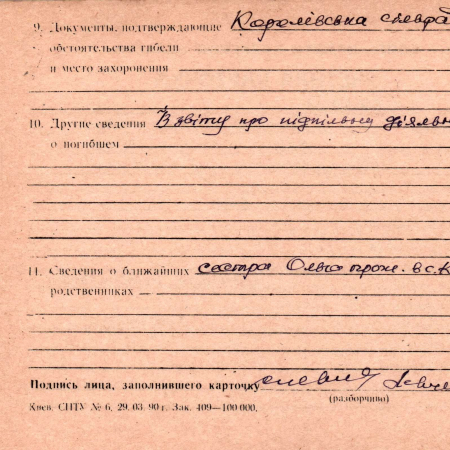 9. Документы, подтверждающие Королівська
обстоятельства гибели
и место захоронения
10. Другие сведения Зі звіту про підпільну діяльн
о погибшем
11. Сведения о ближайших сестра Ольга прож. в с. К
родственниках
Подпись лица, заполнившего карточку
(разборчиво)
Киев. СПТУ № 6. 29. 03. 90 г. Зак. 409—100 000.